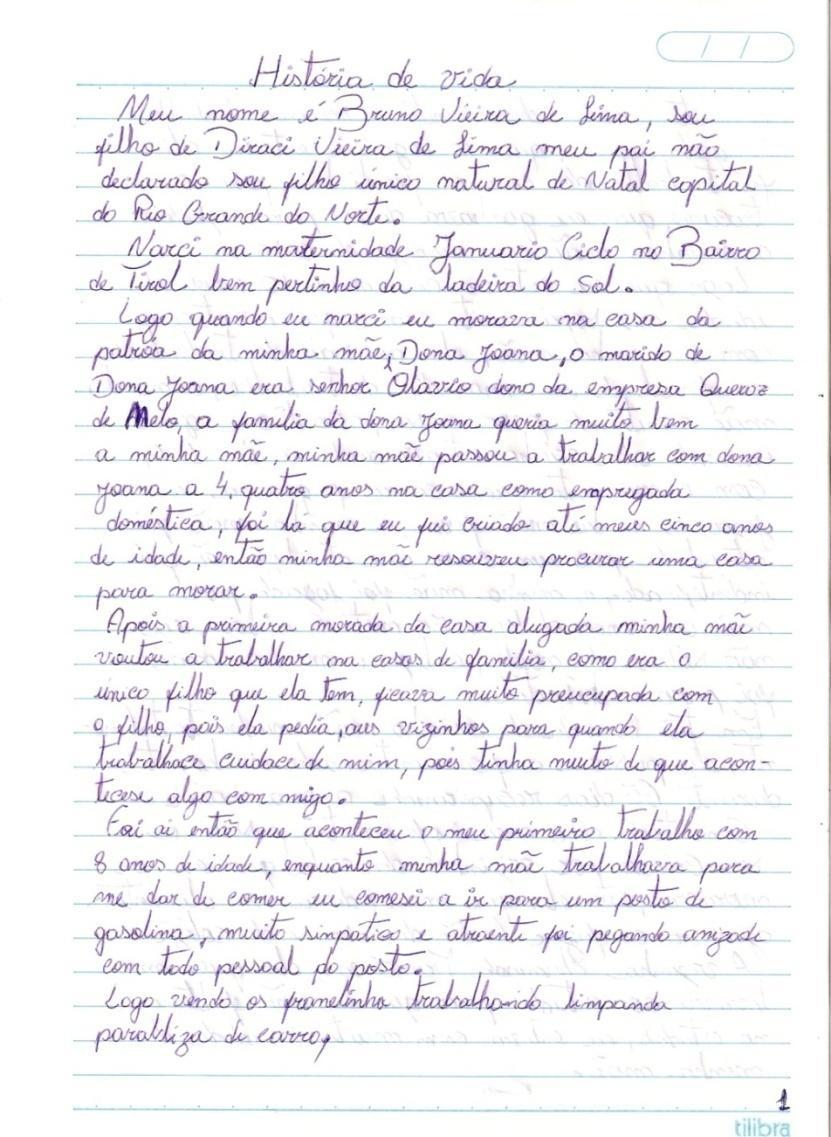 História de vida
Meu nome é Bruno Vieira de Lima, sou
filho de Diraci Vieira de Lima meu pai não
declarado sou filho único natural de Natal copital
do Rio Grande do Norte.
Narci na maternidade Januario Ciclo no Bairro
de Tirol bem pertinho da ladeira do Sol.
Logo quando eu narci eu morava na casa da
patrôa da minha mãe, Dona Joana, o marido de
Dona Joana era senhor Olavrio dono da empresa Queroz
de Melo, a familia da dona Joana queria muito bem
a minha mãe, minha mãe passou a trabalhar com dona
Joana a 4, quatro anos na casa como empregada
doméstica, foi lá que eu fui criado até meus cinco anos
de idade, então minha mãe resouveu procurar uma casa
para morar.
Apois a primeira morada da casa alugada minha mãe
voutou a trabalhar na casas de familia, como era o
único filho que ela tem, ficava muito preucupada com
o filho, pois ela pedia, aus vizinhos para quando ela
trabalhace cuidace de mim, pois tinha muito de que acon-
ticese algo com migo.
Foi ai então que aconteceu o meu primeiro trabalho com
8 anos de idade, enquanto minha mãe trabalhava para
me dar de comer eu comesei a ir para um posto de
gasolina, muito sinpatico e atroente foi pegando amizade
com todo pessoal do posto.
Logo vendo os franelinha trabalhando limpanda
parabliza de carro,
1
tilibra